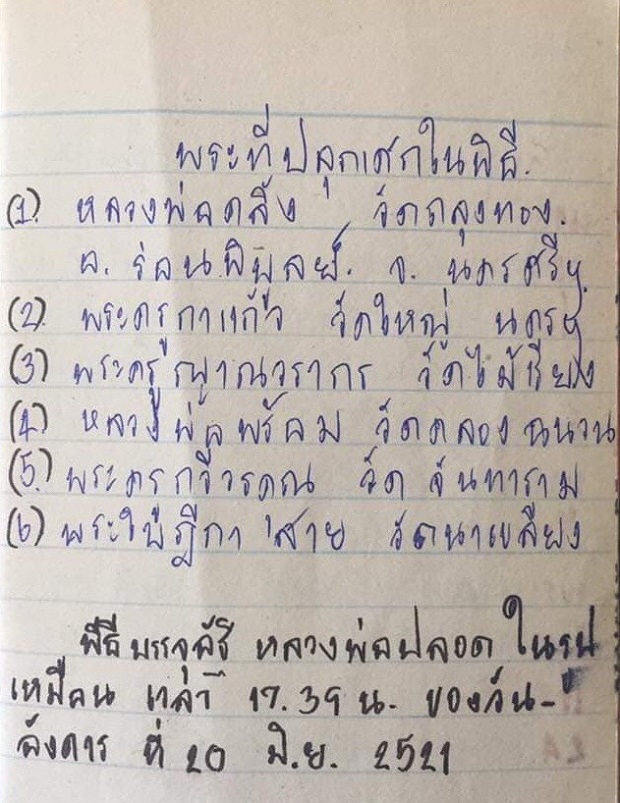 พระที่ปลุกเศกในพิธี.
(1). หลวงพ่อคลิ้ง วัดถลุงทอง.
อ. ร่อนพิบูลย์. จ. นครศรีฯ.
(2) พระครูกาแก้ว วัดใหญ่ นครฯ
(3) พระครูญาณวรากร วัดไม้เรียง
(4) หลวงพ่อพร้อม วัดคลองฉนวน
(5.) พระครู วัด จันทาราม
(6) พระใบฎีกา สาย วัดนาเขลียง
พิธีบรรจุอัฐิ หลวงพ่อปลอด ในรูป
เหมือน เวลา 17.39 น. ของวัน-
อังคาร ที่ 20 มิ.ย. 2521